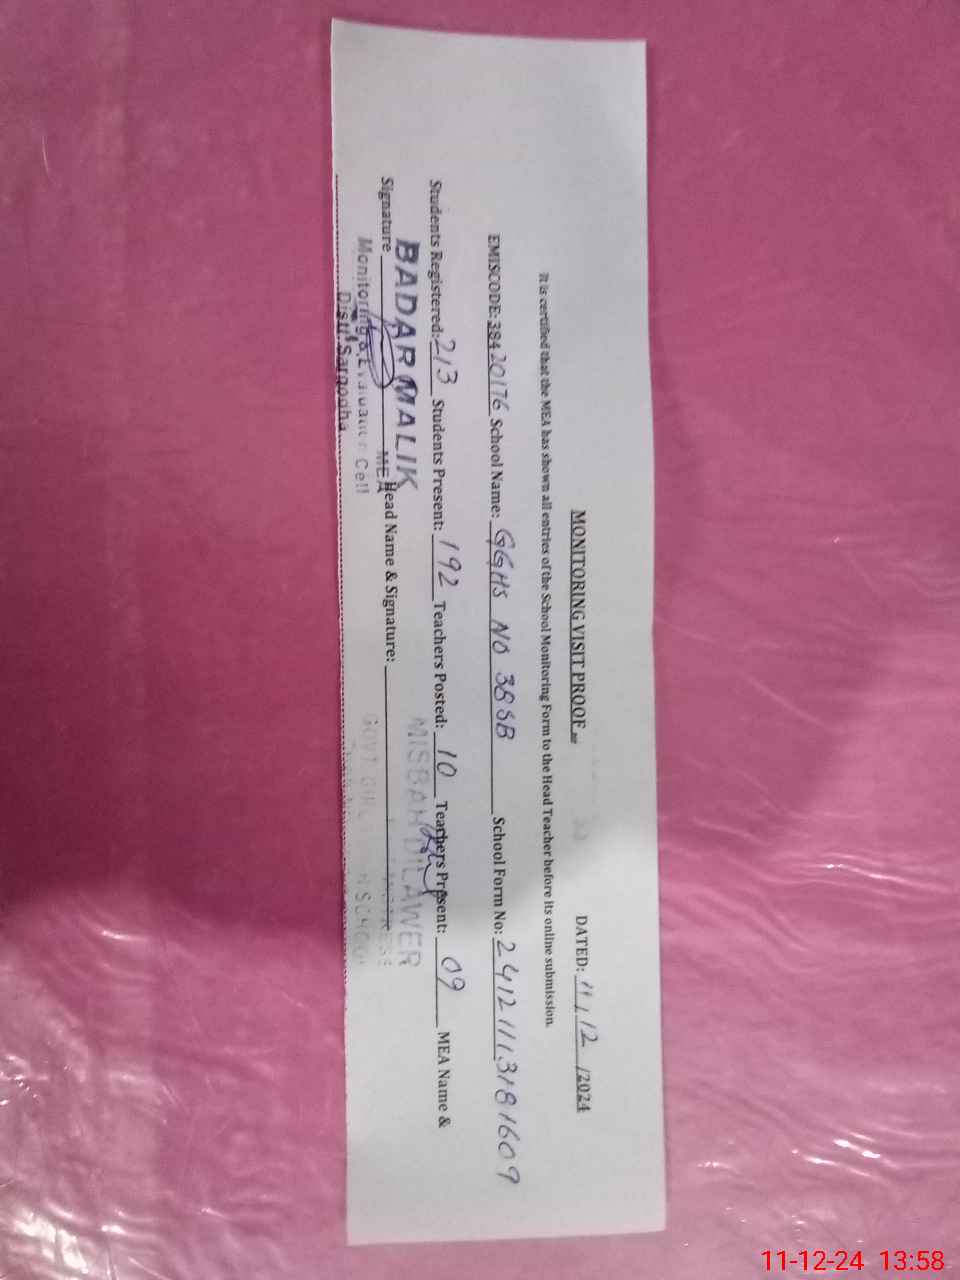 MONITORING VISIT PROOF DATED: 11/12/2024
It is certified that the MEA has shown all entries of the School Monitoring Form to the Head Teacher before its online submission.
EMISCODE: 38420176 School Name: GGHS NO 38SB School Form No: 24121113181609
Students Registered: 213 Students Present: 192 Teachers Posted: 10 Teachers Present: 09 MEA Name &
BADAR MALIK MISBAH DILAWER
Signature MEA Head Name & Signature:
Monitoring & Evaluation Cell GOVT GIRL SCHOOL
Distt. Sargodha
11-12-24 13:58